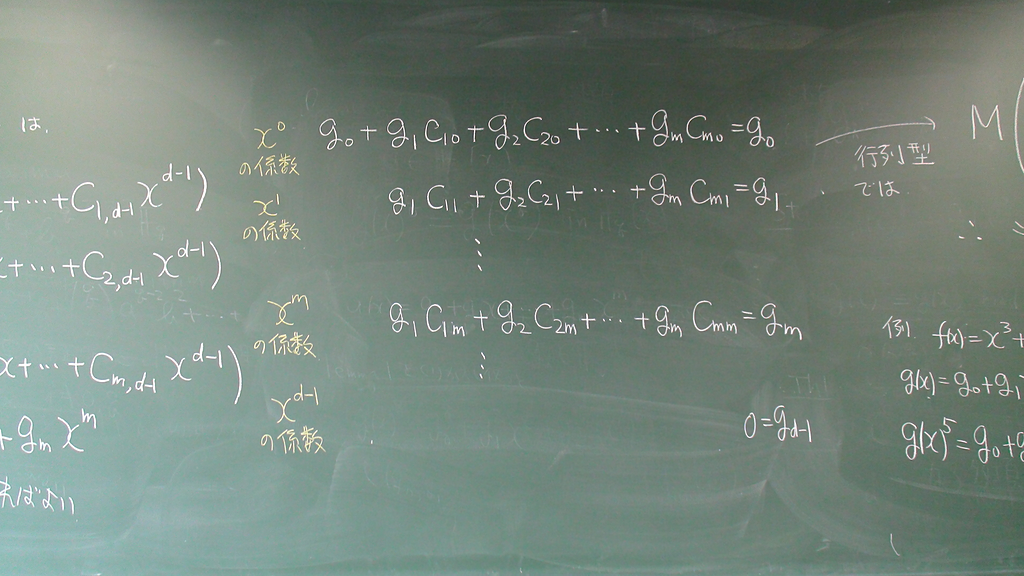 は,
+⋯+C_{1,d-1}x^{d-1})
x+⋯+C_{2,d-1}x^{d-1})
x+⋯+C_{m,d-1}x^{d-1})
+g_m x^m
ればよい
x^0 の係数
g_0+g_1C_{10}+g_2C_{20}+⋯+g_mC_{m0}=g_0
x^1 の係数
g_1C_{11}+g_2C_{21}+⋯+g_mC_{m1}=g_1
⋮
x^m の係数
g_1C_{1m}+g_2C_{2m}+⋯+g_mC_{mm}=g_m
⋮
x^{d-1} の係数
0=g_{d-1}
→ M(
行列型
では
∴
例. f(x)=x^3+
g(x)=g_0+g_1
g(x)^5=g_0+g